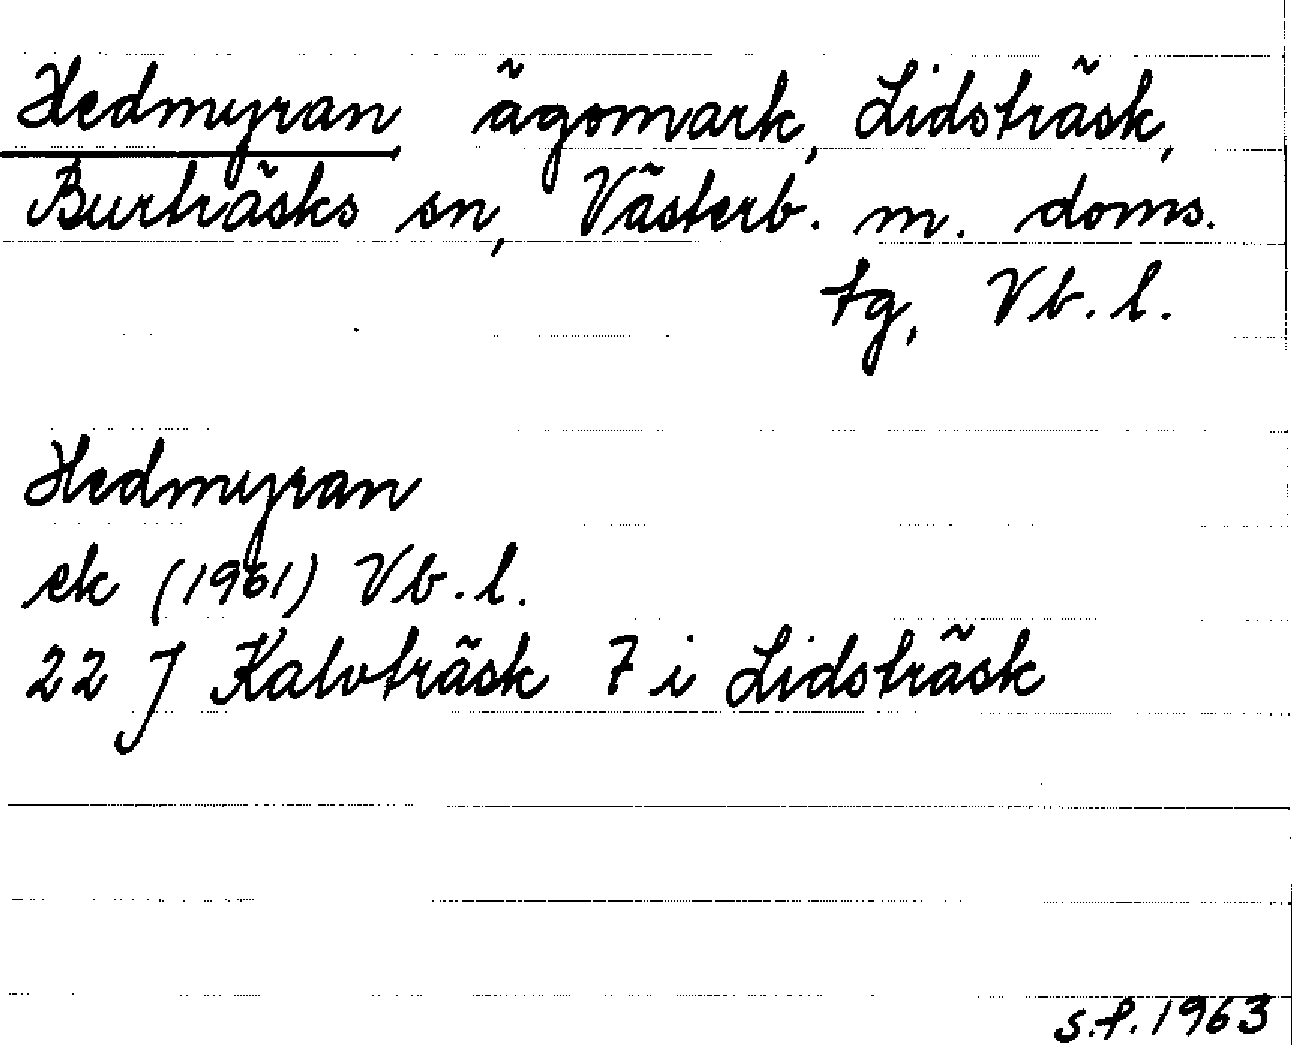 Hedmyran, ägomark, Lidsträsk,
Burträsks sn, Västerb. m. doms.
tg, Vb. l.
Hedmyran
ek (1961) Vb. l.
22 J Kalvträsk 7 i Lidsträsk
s.f. 1963